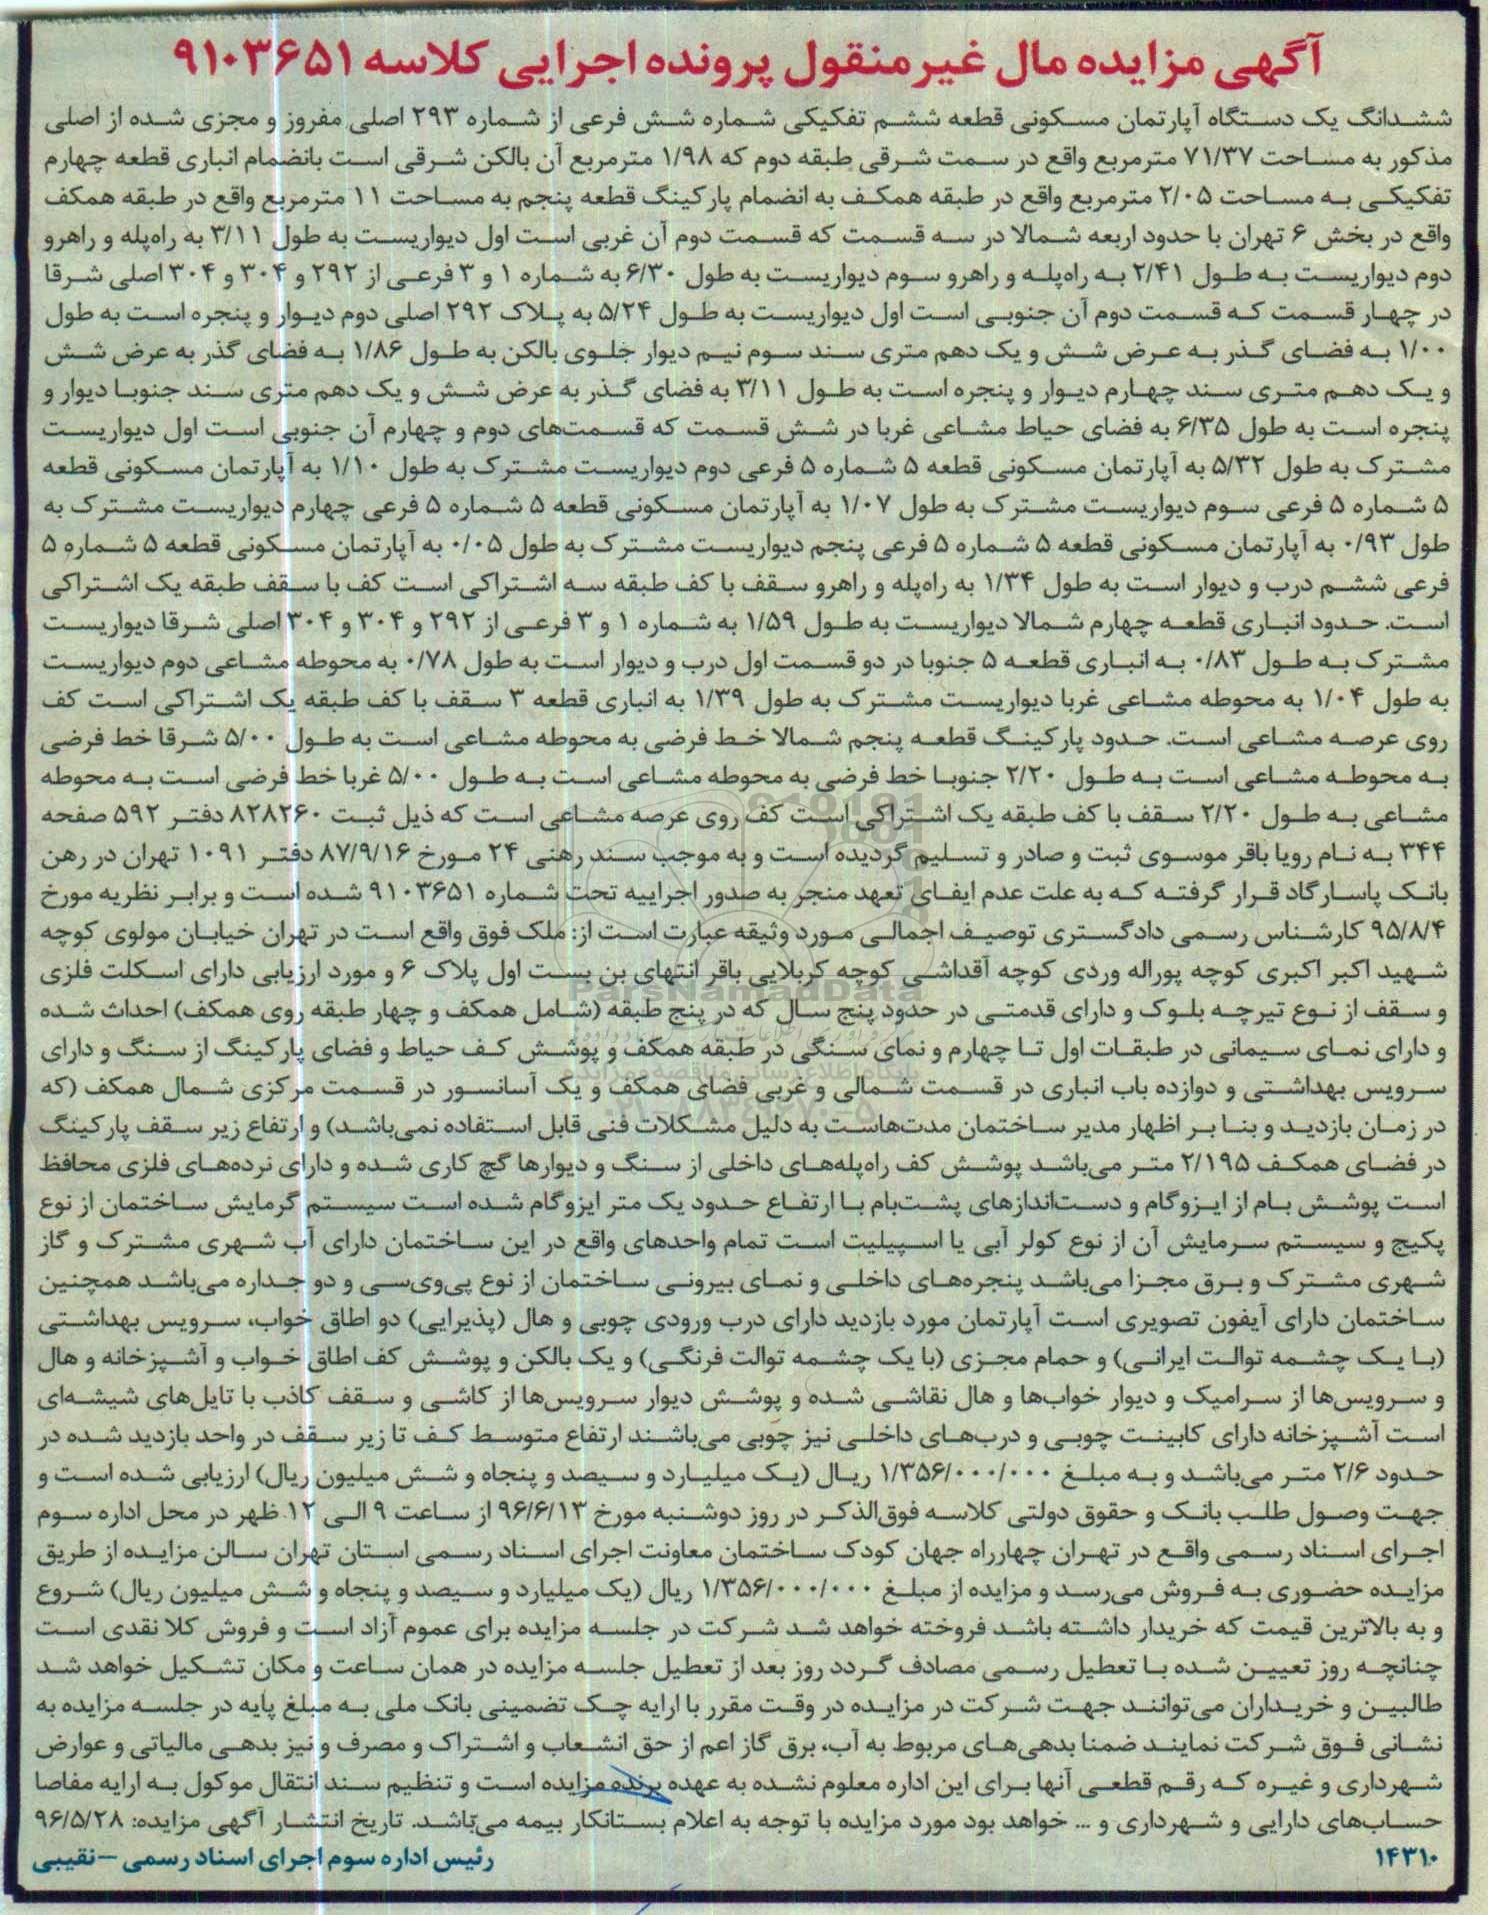 آگهی مزایده مال غیرمنقول پرونده اجرایی کلاسه ۹۱۰۳۶۵۱
ششدانگ یک دستگاه آپارتمان مسکونی قطعه ششم تفکیکی شماره شش فرعی از شماره ۲۹۳ اصلی مفروز و مجزی شده از اصلی
مذکور به مساحت ۷۱/۳۷ مترمربع واقع در سمت شرقی طبقه دوم که ۱/۹۸ مترمربع آن بالکن شرقی است بانضمام انباری قطعه چهارم
تفکیکی به مساحت ۲/۰۵ مترمربع واقع در طبقه همکف به انضمام پارکینگ قطعه پنجم به مساحت ۱۱ مترمربع واقع در طبقه همکف
واقع در بخش ۶ تهران با حدود اربعه شمالا در سه قسمت که قسمت دوم آن غربی است اول دیواریست به طول ۳/۱۱ به راه‌پله و راهرو
دوم دیواریست به طول ۲/۴۱ به راه‌پله و راهرو سوم دیواریست به طول ۶/۳۰ به شماره ۱ و ۳ فرعی از ۲۹۲ و ۳۰۴ و ۳۰۴ اصلی شرقا
در چهار قسمت که قسمت دوم آن جنوبی است اول دیواریست به طول ۵/۲۴ به پلاک ۲۹۲ اصلی دوم دیوار و پنجره است به طول
۱/۰۰ به فضای گذر به عرض شش و یک دهم متری سند سوم نیم دیوار جلوی بالکن به طول ۱/۸۶ به فضای گذر به عرض شش
و یک دهم متری سند چهارم دیوار و پنجره است به طول ۳/۱۱ به فضای گذر به عرض شش و یک دهم متری سند جنوبا دیوار و
پنجره است به طول ۶/۳۵ به فضای حیاط مشاعی غربا در شش قسمت که قسمت‌های دوم و چهارم آن جنوبی است اول دیواریست
مشترک به طول ۵/۳۲ به آپارتمان مسکونی قطعه ۵ شماره ۵ فرعی دوم دیواریست مشترک به طول ۱/۱۰ به آپارتمان مسکونی قطعه
۵ شماره ۵ فرعی سوم دیواریست مشترک به طول ۱/۰۷ به آپارتمان مسکونی قطعه ۵ شماره ۵ فرعی چهارم دیواریست مشترک به
طول ۰/۹۳ به آپارتمان مسکونی قطعه ۵ شماره ۵ فرعی پنجم دیواریست مشترک به طول ۰/۰۵ به آپارتمان مسکونی قطعه ۵ شماره ۵
فرعی ششم درب و دیوار است به طول ۱/۳۴ به راه‌پله و راهرو سقف با کف طبقه سه اشتراکی است کف با سقف طبقه یک اشتراکی
است. حدود انباری قطعه چهارم شمالا دیواریست به طول ۱/۵۹ به شماره ۱ و ۳ فرعی از ۲۹۲ و ۳۰۴ و ۳۰۴ اصلی شرقا دیواریست
مشترک به طول ۰/۸۳ به انباری قطعه ۵ جنوبا در دو قسمت اول درب و دیوار است به طول ۰/۷۸ به محوطه مشاعی دوم دیواریست
به طول ۱/۰۴ به محوطه مشاعی غربا دیواریست مشترک به طول ۱/۳۹ به انباری قطعه ۳ سقف با کف طبقه یک اشتراکی است کف
روی عرصه مشاعی است. حدود پارکینگ قطعه پنجم شمالا خط فرضی به محوطه مشاعی است به طول ۵/۰۰ شرقا خط فرضی
به محوطه مشاعی است به طول ۲/۲۰ جنوبا خط فرضی به محوطه مشاعی است به طول ۵/۰۰ غربا خط فرضی است به محوطه
مشاعی به طول ۲/۲۰ سقف با کف طبقه یک اشتراکی است کف روی عرصه مشاعی است که ذیل ثبت ۸۲۸۲۶۰ دفتر ۵۹۲ صفحه
۳۴۴ به نام رویا باقر موسوی ثبت و صادر و تسلیم گردیده است و به موجب سند رهنی ۲۴ مورخ ۸۷/۹/۱۶ دفتر ۱۰۹۱ تهران در رهن
بانک پاسارگاد قرار گرفته که به علت عدم ایفای تعهد منجر به صدور اجراییه تحت شماره ۹۱۰۳۶۵۱ شده است و برابر نظریه مورخ
۹۵/۸/۴ کارشناس رسمی دادگستری توصیف اجمالی مورد وثیقه عبارت است از: ملک فوق واقع است در تهران خیابان مولوی کوچه
شهید اکبر اکبری کوچه پوراله وردی کوچه آقداشی کوچه کربلایی باقر انتهای بن بست اول پلاک ۶ و مورد ارزیابی دارای اسکلت فلزی
و سقف از نوع تیرچه بلوک و دارای قدمتی در حدود پنج سال که در پنج طبقه (شامل همکف و چهار طبقه روی همکف) احداث شده
و دارای نمای سیمانی در طبقات اول تا چهارم و نمای سنگی در طبقه همکف و پوشش کف حیاط و فضای پارکینگ از سنگ و دارای
سرویس بهداشتی و دوازده باب انباری در قسمت شمالی و غربی فضای همکف و یک آسانسور در قسمت مرکزی شمال همکف (که
در زمان بازدید و بنا بر اظهار مدیر ساختمان مدت‌هاست به دلیل مشکلات فنی قابل استفاده نمی‌باشد) و ارتفاع زیر سقف پارکینگ
در فضای همکف ۲/۱۹۵ متر می‌باشد پوشش کف راه‌پله‌های داخلی از سنگ و دیوارها گچ کاری شده و دارای نرده‌های فلزی محافظ
است پوشش بام از ایزوگام و دست‌اندازهای پشت‌بام با ارتفاع حدود یک متر ایزوگام شده است سیستم گرمایش ساختمان از نوع
پکیج و سیستم سرمایش آن از نوع کولر آبی یا اسپیلیت است تمام واحدهای واقع در این ساختمان دارای آب شهری مشترک و گاز
شهری مشترک و برق مجزا می‌باشد پنجره‌های داخلی و نمای بیرونی ساختمان از نوع پی‌وی‌سی و دو جداره می‌باشد همچنین
ساختمان دارای آیفون تصویری است آپارتمان مورد بازدید دارای درب ورودی چوبی و هال (پذیرایی) دو اطاق خواب، سرویس بهداشتی
(با یک چشمه توالت ایرانی) و حمام مجزی (با یک چشمه توالت فرنگی) و یک بالکن و پوشش کف اطاق خواب و آشپزخانه و هال
و سرویس‌ها از سرامیک و دیوار خواب‌ها و هال نقاشی شده و پوشش دیوار سرویس‌ها از کاشی و سقف کاذب با تایل‌های شیشه‌ای
است آشپزخانه دارای کابینت چوبی و درب‌های داخلی نیز چوبی می‌باشند ارتفاع متوسط کف تا زیر سقف در واحد بازدید شده در
حدود ۲/۶ متر می‌باشد و به مبلغ ۱/۳۵۶/۰۰۰/۰۰۰ ریال (یک میلیارد و سیصد و پنجاه و شش میلیون ریال) ارزیابی شده است و
جهت وصول طلب بانک و حقوق دولتی کلاسه فوق‌الذکر در روز دوشنبه مورخ ۹۶/۶/۱۳ از ساعت ۹ الی ۱۲ ظهر در محل اداره سوم
اجرای اسناد رسمی واقع در تهران چهارراه جهان کودک ساختمان معاونت اجرای اسناد رسمی استان تهران سالن مزایده از طریق
مزایده حضوری به فروش می‌رسد و مزایده از مبلغ ۱/۳۵۶/۰۰۰/۰۰۰ ریال (یک میلیارد و سیصد و پنجاه و شش میلیون ریال) شروع
و به بالاترین قیمت که خریدار داشته باشد فروخته خواهد شد شرکت در جلسه مزایده برای عموم آزاد است و فروش کلا نقدی است
چنانچه روز تعیین شده با تعطیل رسمی مصادف گردد روز بعد از تعطیل جلسه مزایده در همان ساعت و مکان تشکیل خواهد شد
طالبین و خریداران می‌توانند جهت شرکت در مزایده در وقت مقرر با ارایه چک تضمینی بانک ملی به مبلغ پایه در جلسه مزایده به
نشانی فوق شرکت نمایند ضمنا بدهی‌های مربوط به آب، برق گاز اعم از حق انشعاب و اشتراک و مصرف و نیز بدهی مالیاتی و عوارض
شهرداری و غیره که رقم قطعی آنها برای این اداره معلوم نشده به عهده برنده مزایده است و تنظیم سند انتقال موکول به ارایه مفاصا
حساب‌های دارایی و شهرداری و ... خواهد بود مورد مزایده با توجه به اعلام بستانکار بیمه می‌باشد. تاریخ انتشار آگهی مزایده: ۹۶/۵/۲۸
۱۴۳۱۰ رئیس اداره سوم اجرای اسناد رسمی – نقیبی
ParsNamadData
پایگاه اطلاع رسانی مناقصه و مزایده